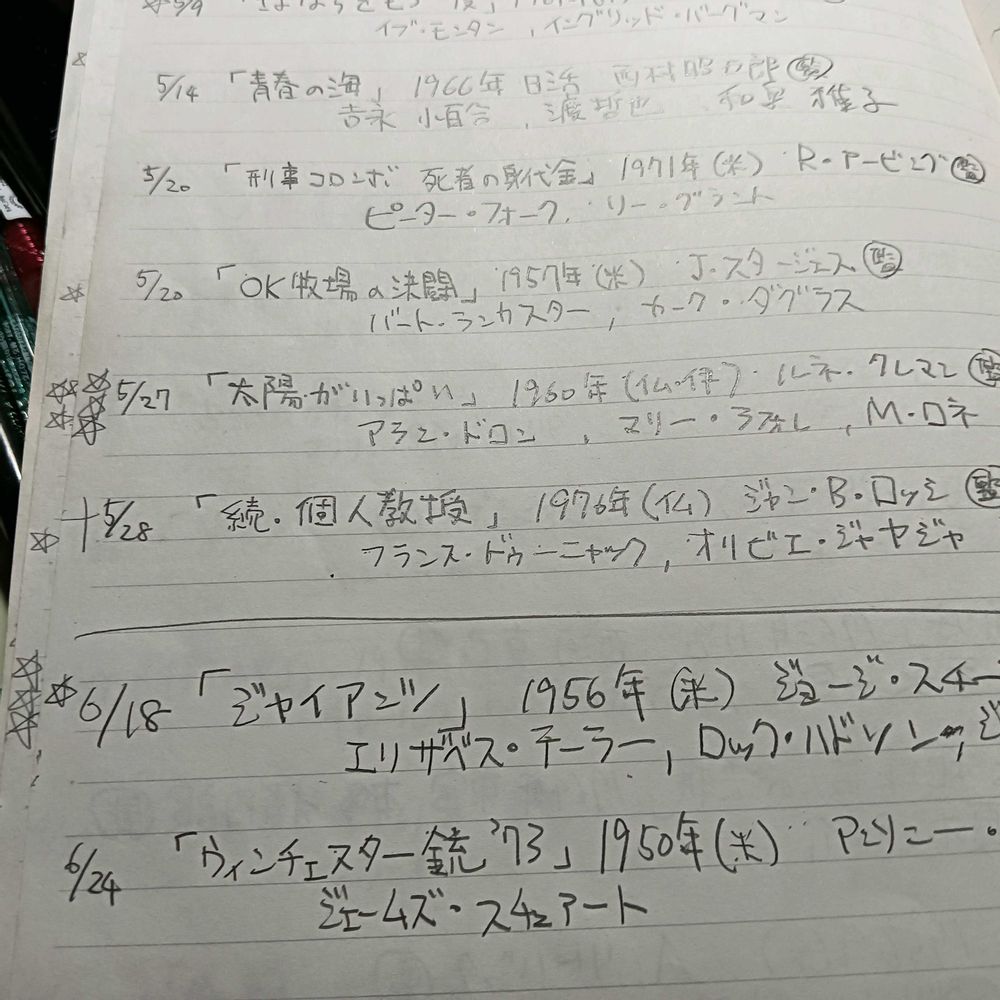 ☆5/9
イブ・モンタン, イングリッド・バーグマン
5/14 「青春の海」 1966年 日活 西村昭五郎 監
吉永 小百合, 渡哲也 和泉 雅子
5/20 「刑事コロンボ 死者の身代金」 1971年(米) R・アービング 監
ピーター・フォーク, リー・グラント
☆ 5/20 「OK牧場の決闘」 1957年(米) J.スタージェス 監
バート・ランカスター, カーク・ダグラス
☆☆☆☆ 5/27 「太陽がいっぱい」 1960年(仏・伊) ルネ・クレマン 監
アラン・ドロン, マリー・ラフォレ, M・ロネ
☆ 5/28 「続・個人教授」 1976年(仏) ジャン・B・ロッシ 監
フランス・ドゥーニャック, オリビエ・ジャヤジャ
☆☆☆☆ 6/18 「ジャイアンツ」 1956年(米) ジョージ・スチー
エリザベス・テーラー, ロック・ハドソン, ジ
6/24 「ウィンチェスター銃'73」 1950年(米) アンソニー・
ジェームズ・スチュアート